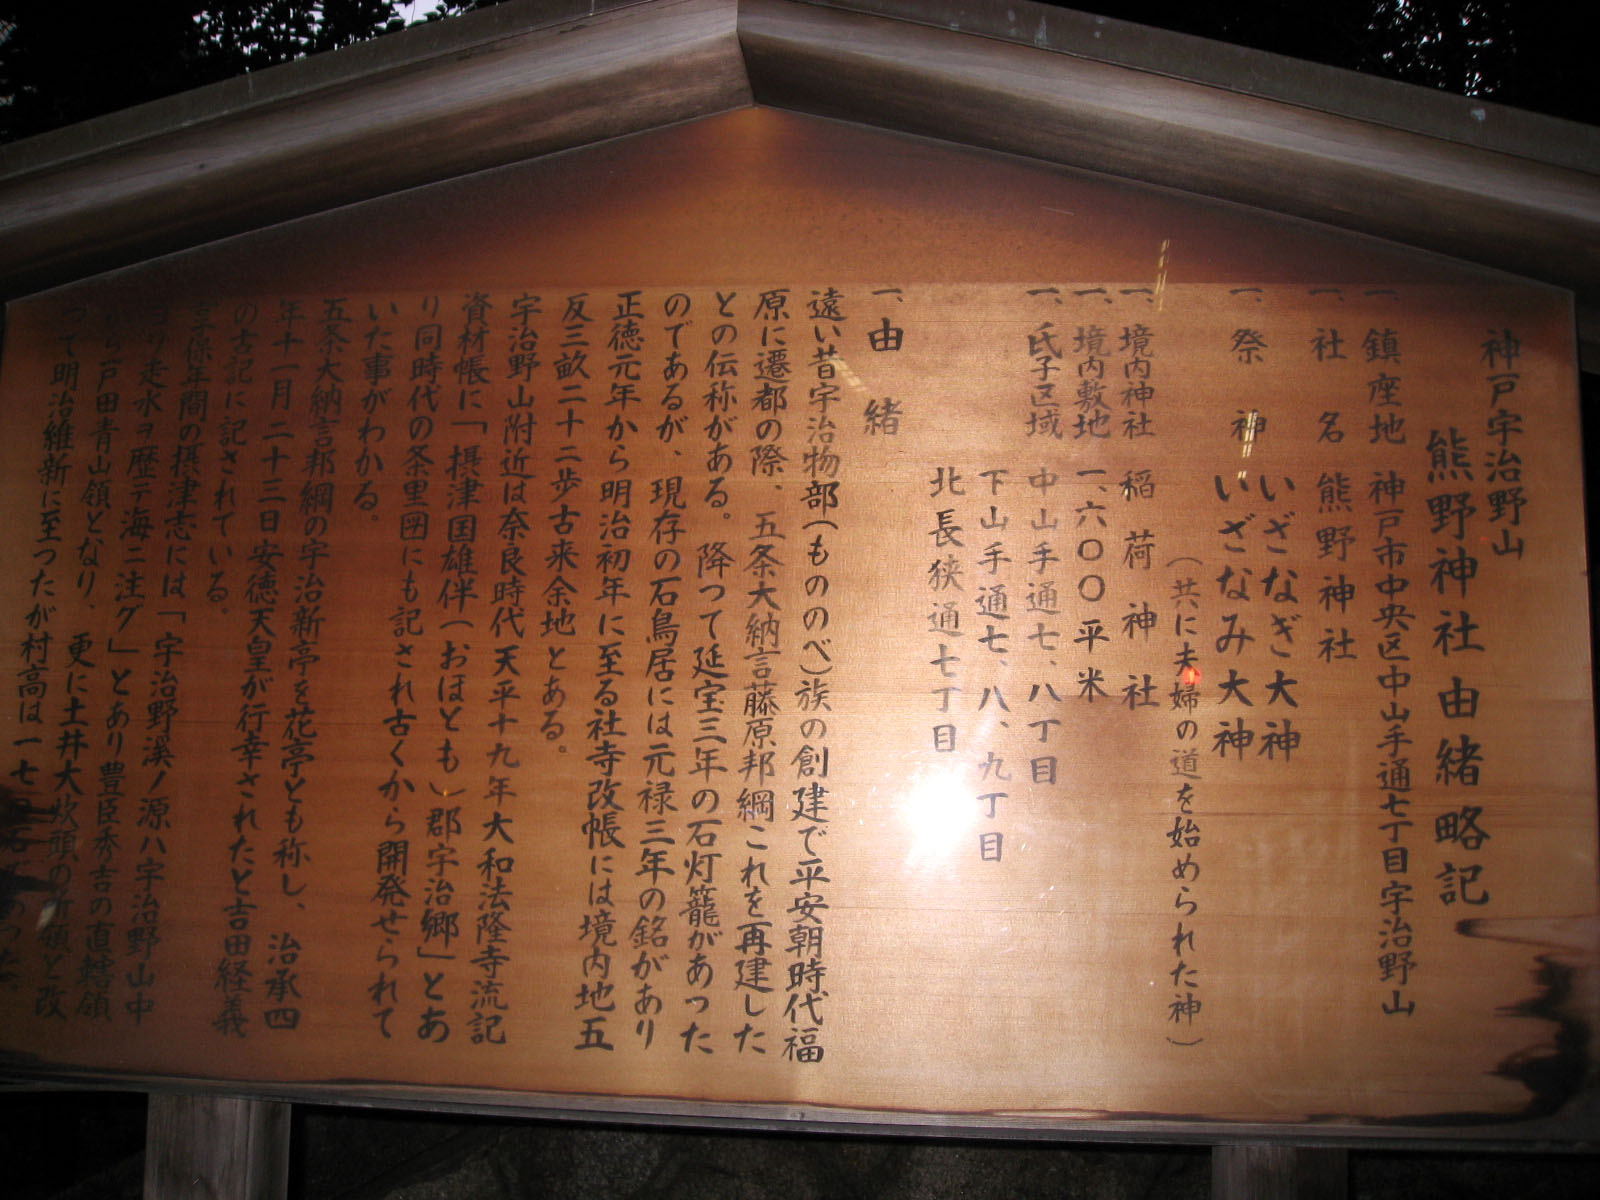 神戸宇治野山
熊野神社由緒略記
一、鎮座地 神戸市中央区中山手通七丁目宇治野山
一、社名 熊野神社
一、祭神 いざなぎ大神
いざなみ大神
（共に夫婦の道を始められた神）
一、境内神社 稲荷神社
一、境内敷地 一、六〇〇平米
一、氏子区域 中山手通七、八丁目
下山手通七、八、九丁目
北長狭通七丁目
一、由緒
遠い昔宇治物部（もののべ）族の創建で平安朝時代福
原に遷都の際、五条大納言藤原邦綱これを再建した
との伝称がある。降つて延宝三年の石灯籠があつた
のであるが、現存の石鳥居には元禄三年の銘があり
正徳元年から明治初年に至る社寺改帳には境内地五
反三畝二十二歩古来余地とある。
宇治野山附近は奈良時代天平十九年大和法隆寺流記
資材帳に「摂津国雄伴（おほとも）郡宇治郷」とあ
り同時代の条里図にも記され古くから開発せられて
いた事がわかる。
五条大納言邦綱の宇治新亭を花亭とも称し、治承四
年十一月二十三日安徳天皇が行幸されたと吉田経義
の古記に記されている。
享保年間の摂津志には「宇治野溪ノ源ハ宇治野山中
ヨリ走水ヲ歴テ海ニ注グ」とあり豊臣秀吉の直轄領
から戸田青山領となり、更に土井大炊頭の所領と改
つて明治維新に至つたが村高は一七